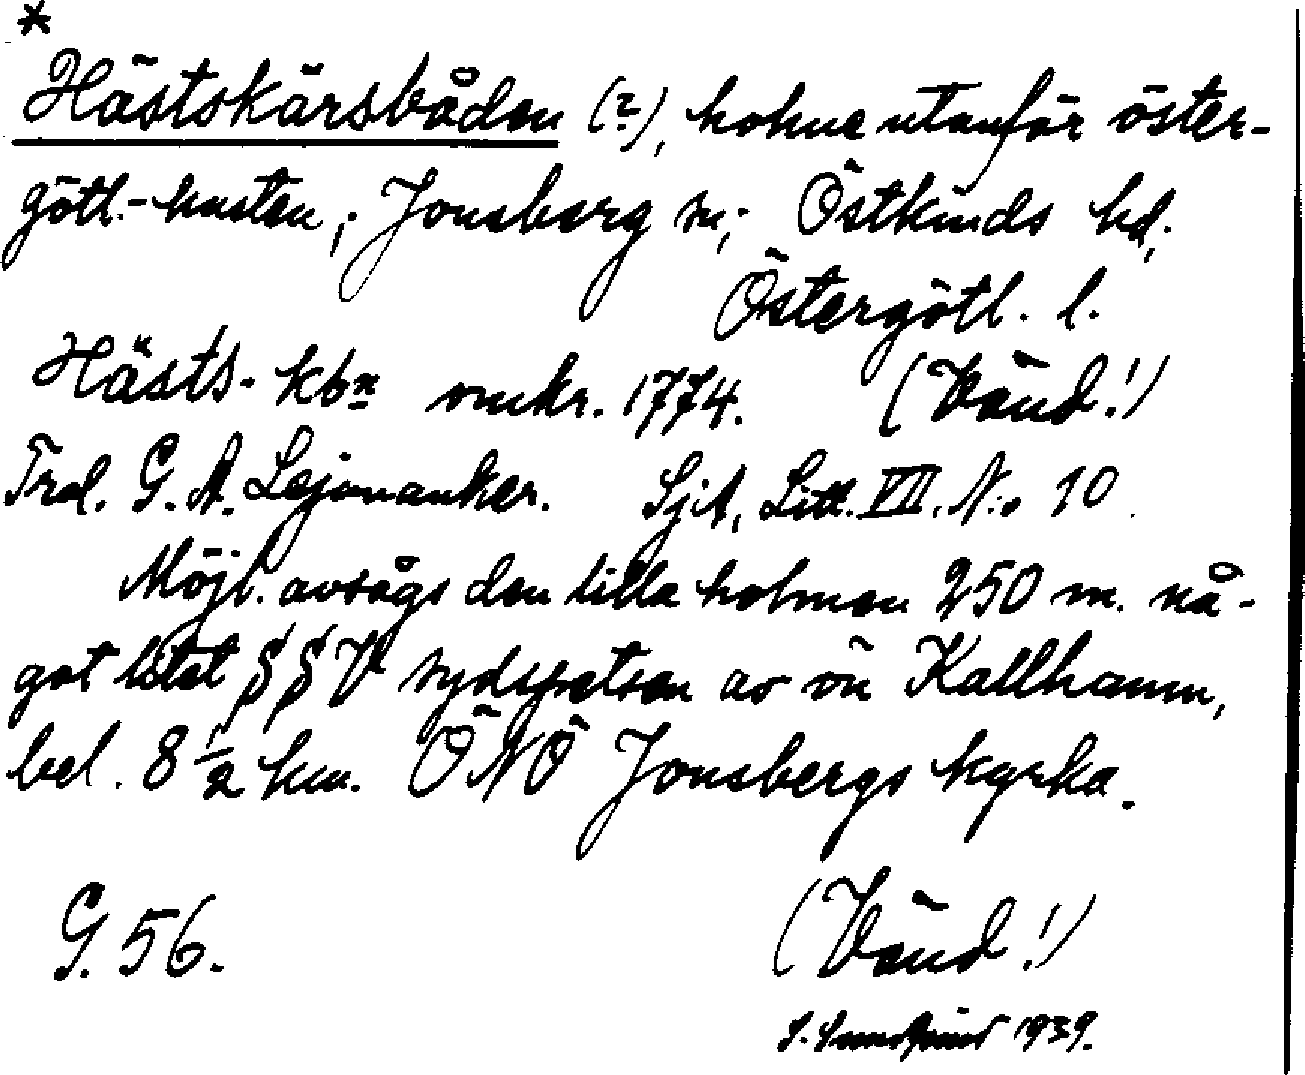 *
Hästskärsbåden (?), holme utanför öster-
götl.-kusten; Jonsberg sn; Östkinds hd;
Östergötl. l.
Hästs-kbn omkr. 1774. (Vänd!)
Trol. G. A. Lejonanker. Sjit, Litt. VIII. No 10
Möjl. avsågs den lilla holmen 250 m. nå-
got litet SSV sydspetsen av ön Kallhamn,
bel. 8 1/2 km. ÖNÖ Jonsbergs kyrka.
G. 56. (Vänd!)
S. 1939.